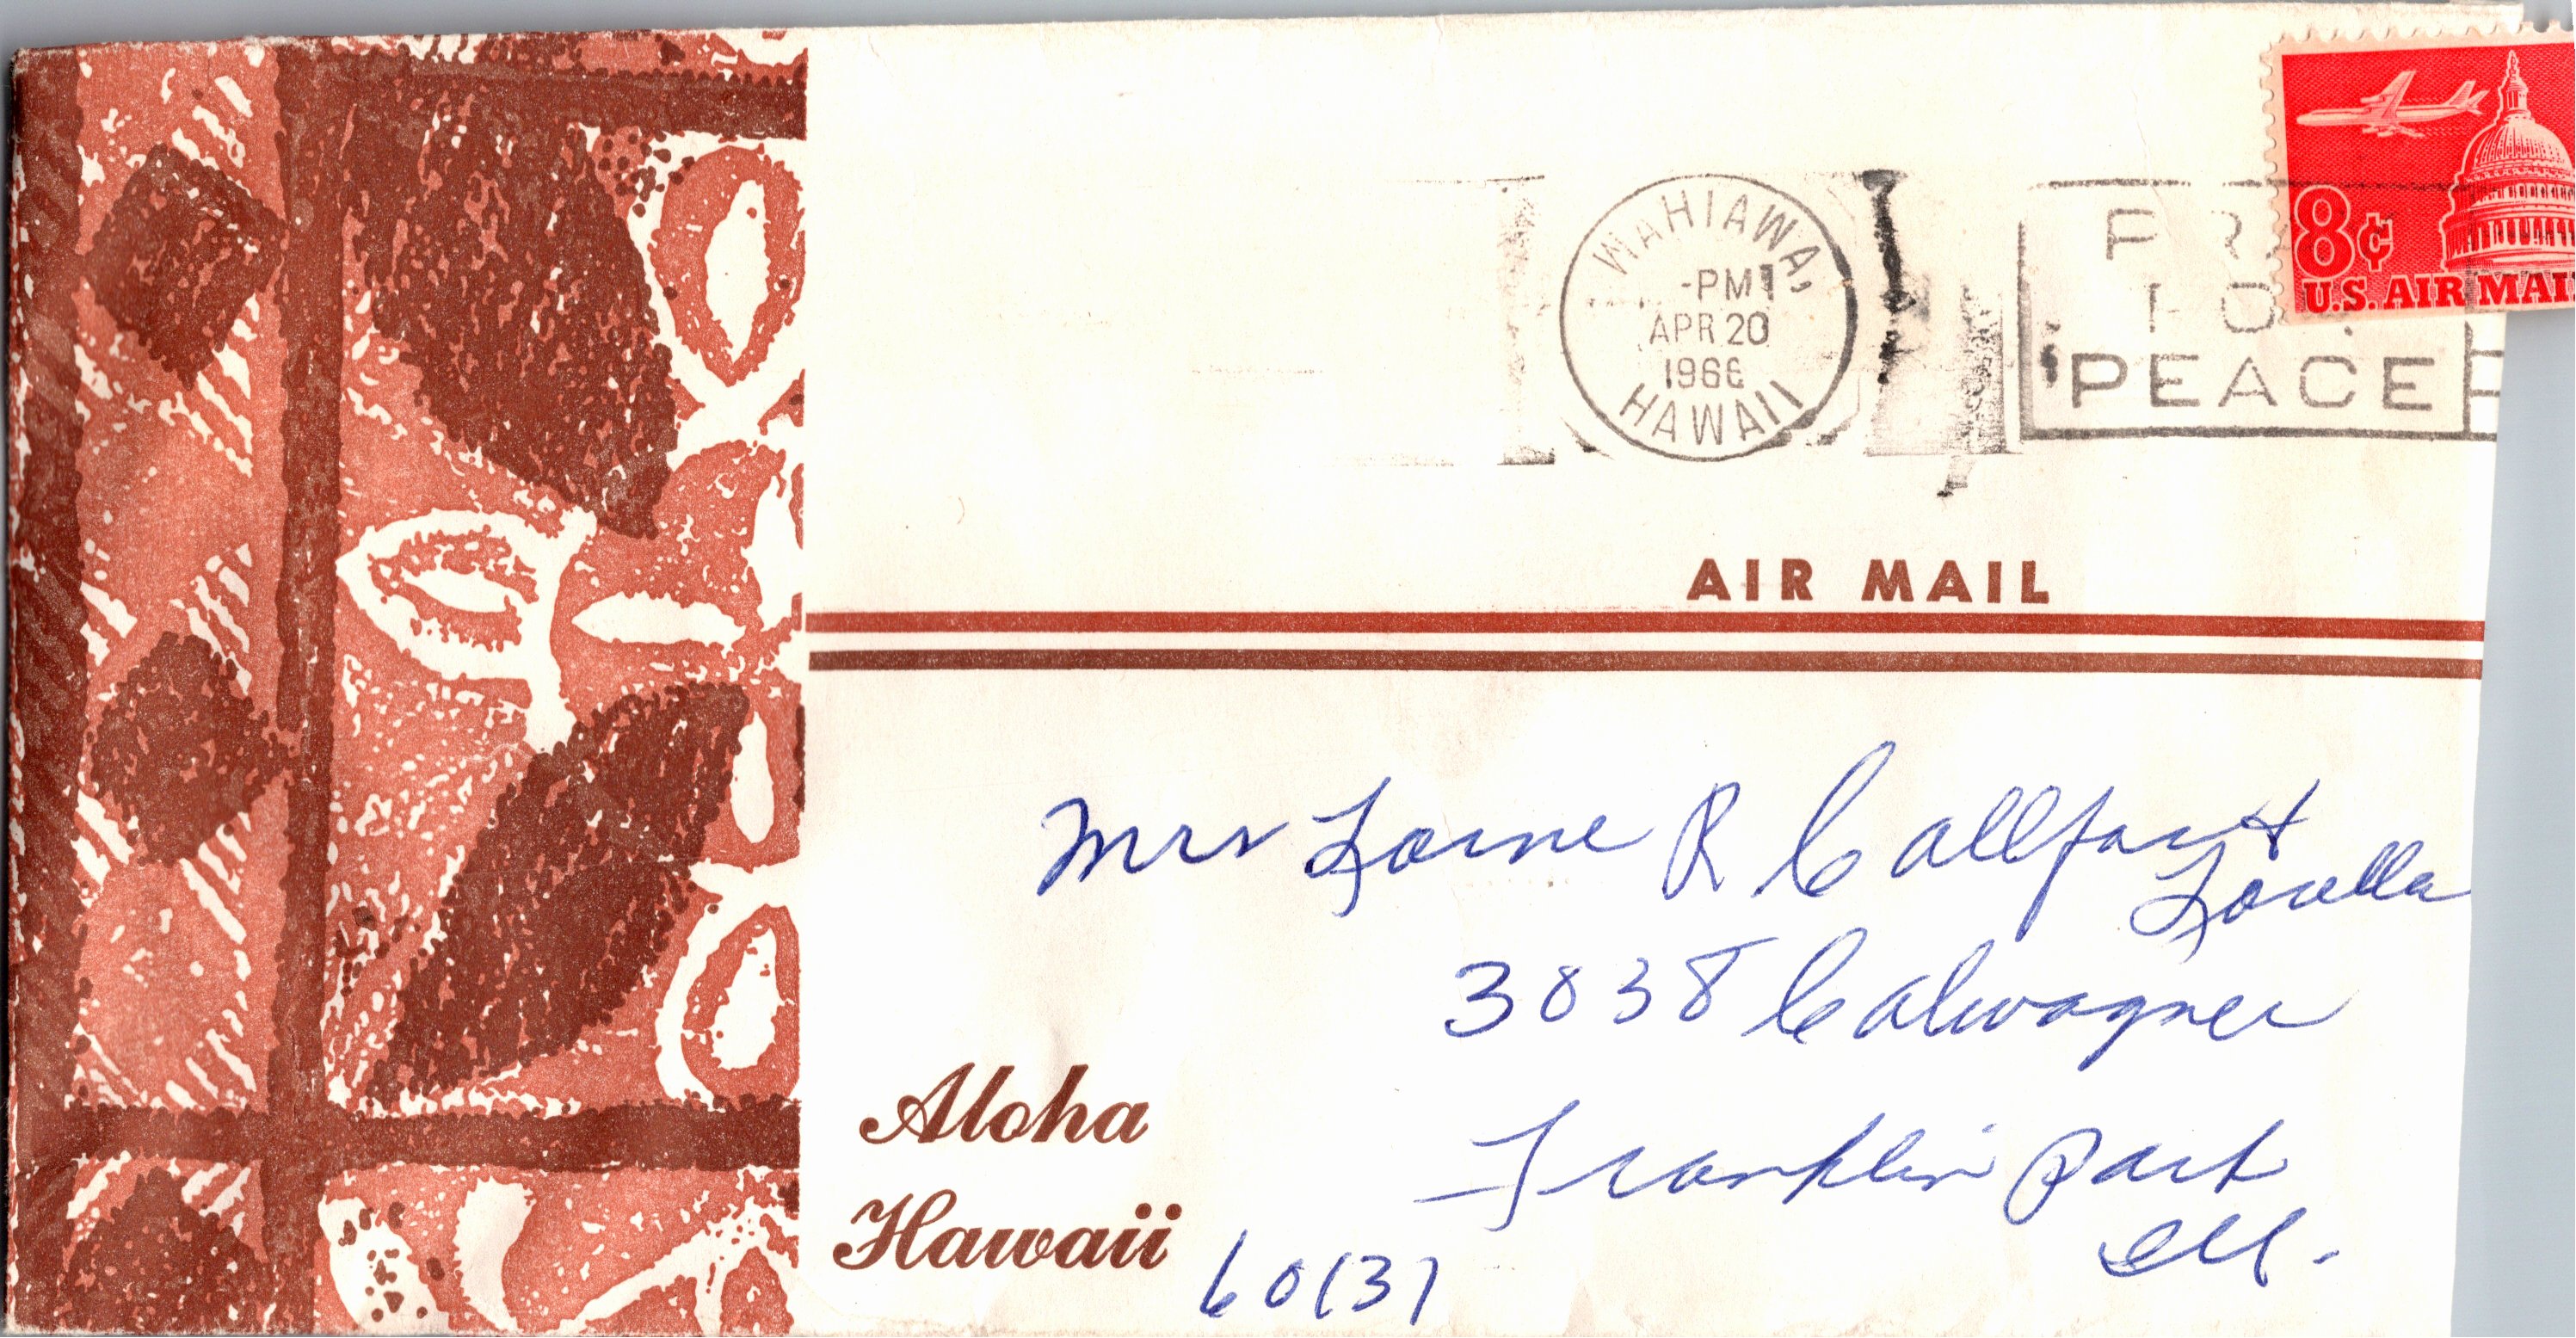 WAHIAWA,
-PM
APR 20
1966
HAWAII
PR
FO
PEACE
8¢
U.S. AIR MAIL
AIR MAIL
Mrs Lorne R Callfas &
Louella
3038 Calwagner
Franklin Park
Ill.
60131
Aloha
Hawaii